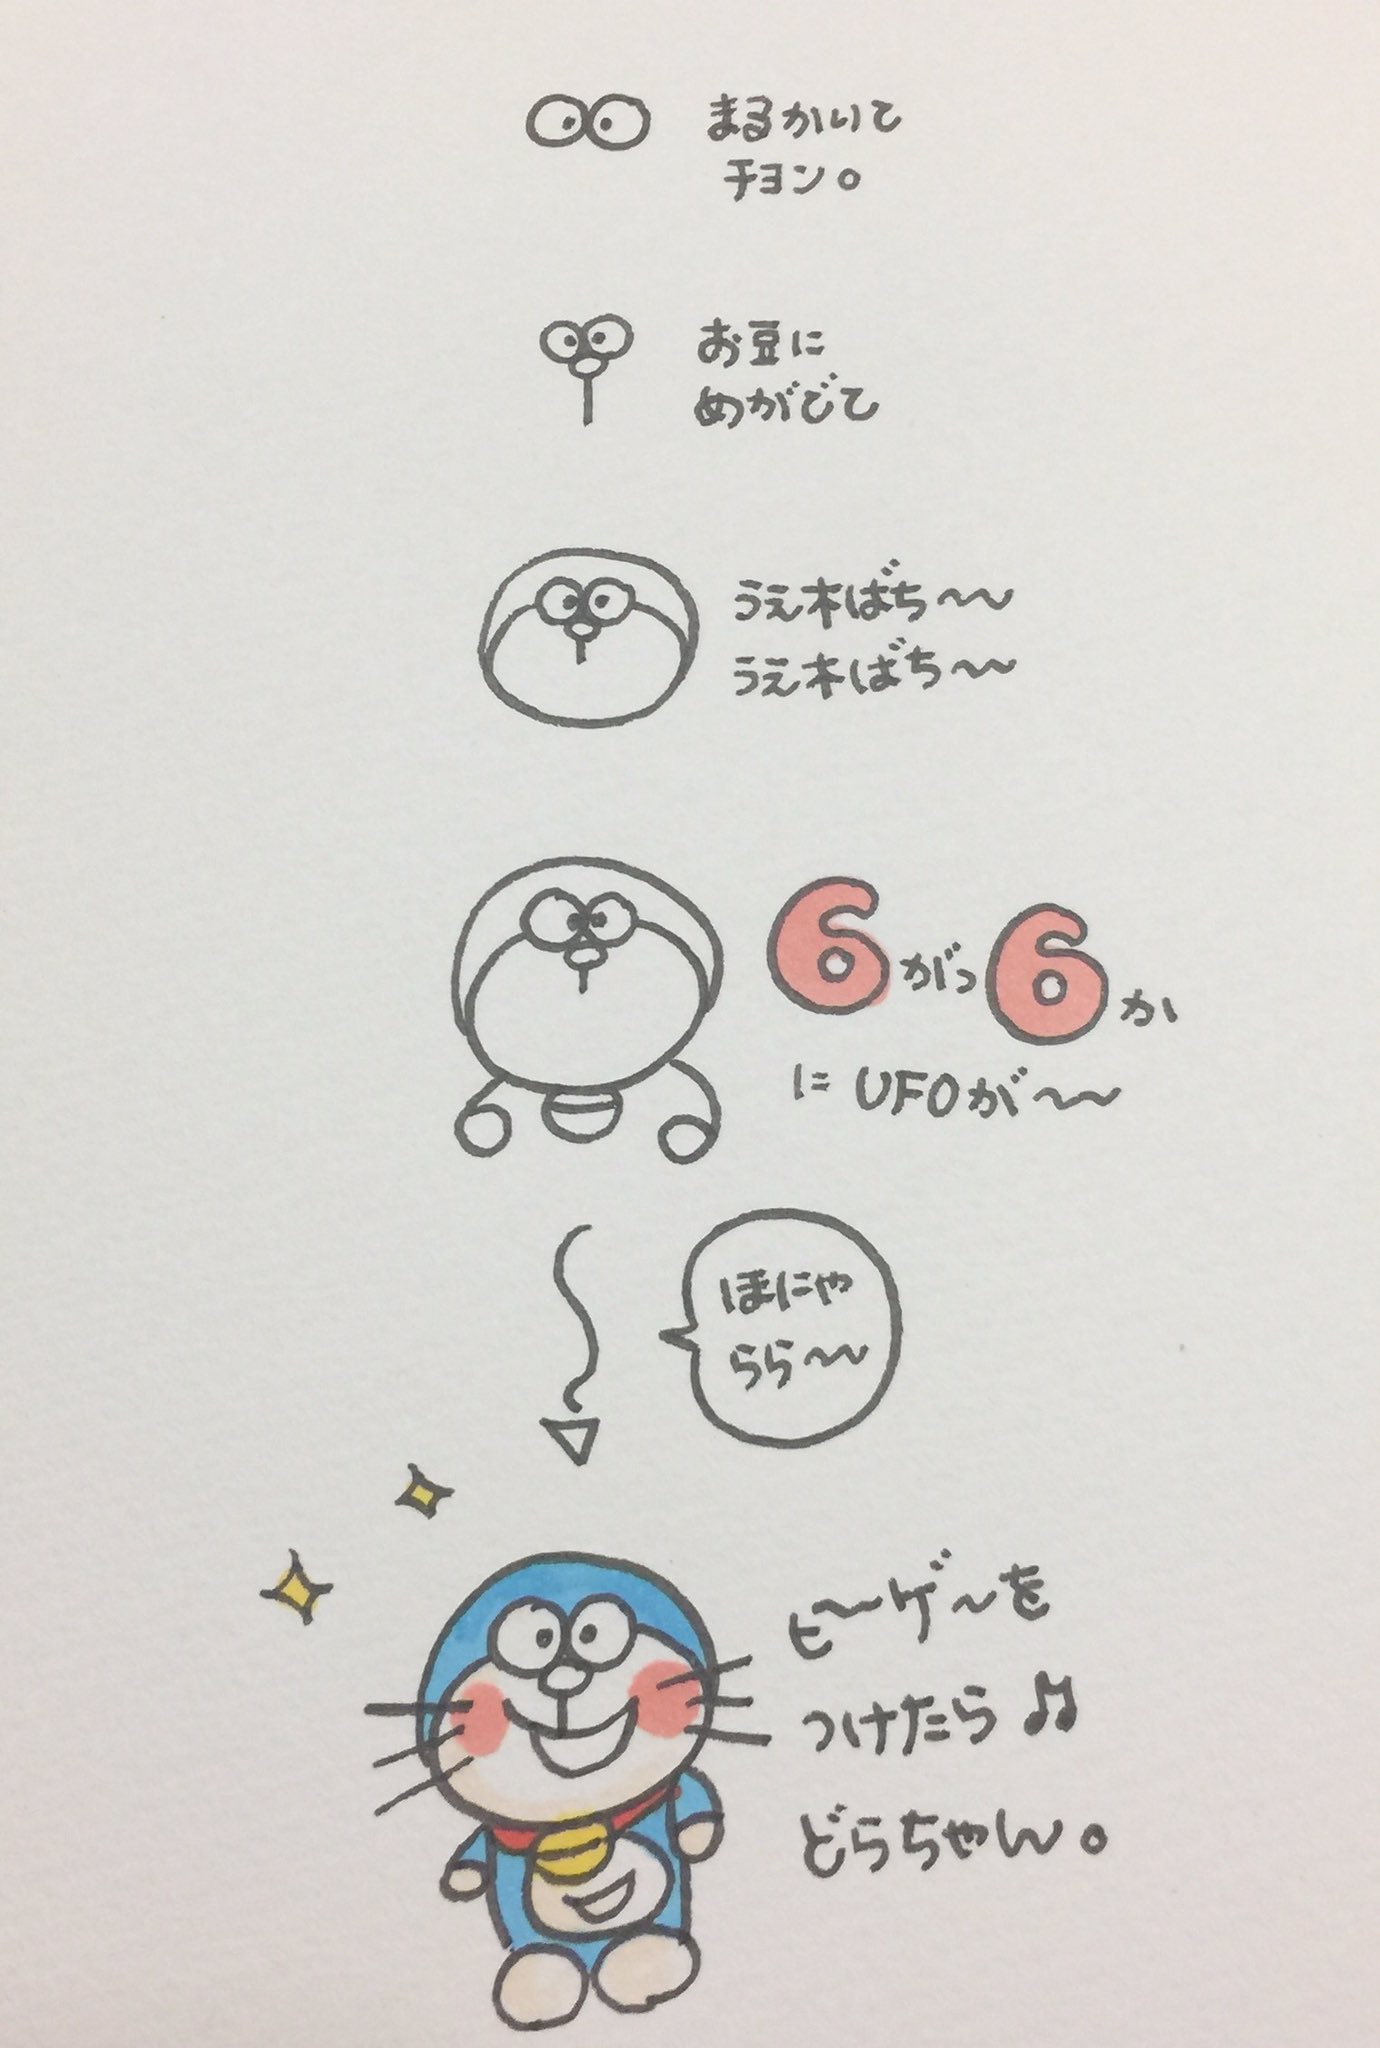 まるかいて
チョン。
お豆に
めがでて
うえ木ばち〜〜
うえ木ばち〜〜
6がつ6か
にUFOが〜〜
ほにゃ
らら〜〜
ヒ〜ゲ〜を
つけたら♫
どらちゃん。